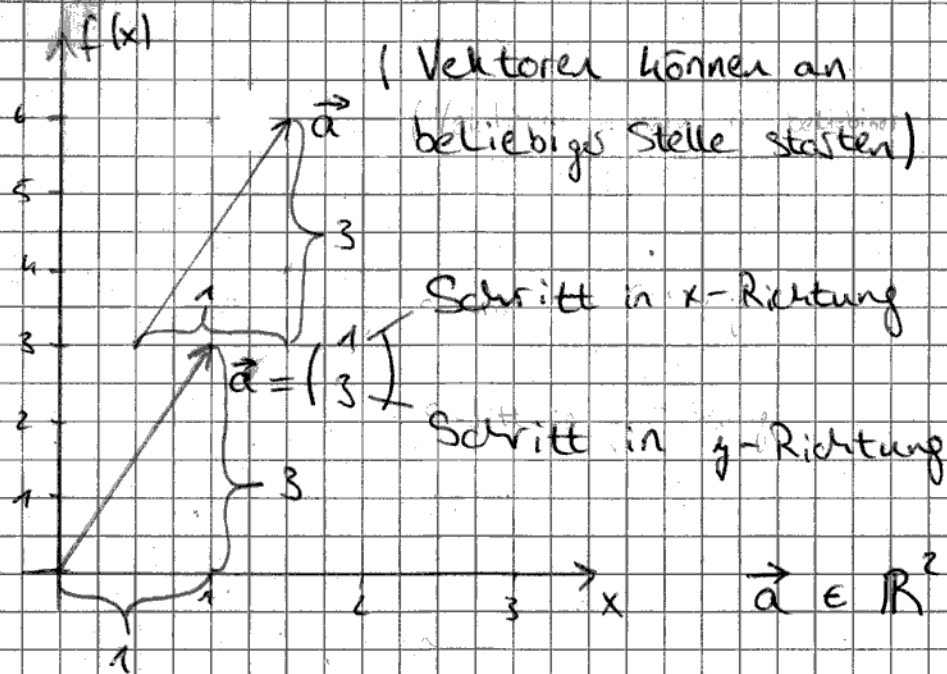 f(x)
( Vektoren können an
beliebiger Stelle starten)
6
a⃗
5
3
4
1
Schritt in x-Richtung
3
a⃗ = (1
3)
2
Schritt in y-Richtung
1
3
1
2
3
x
a⃗ ∈ ℝ²
1